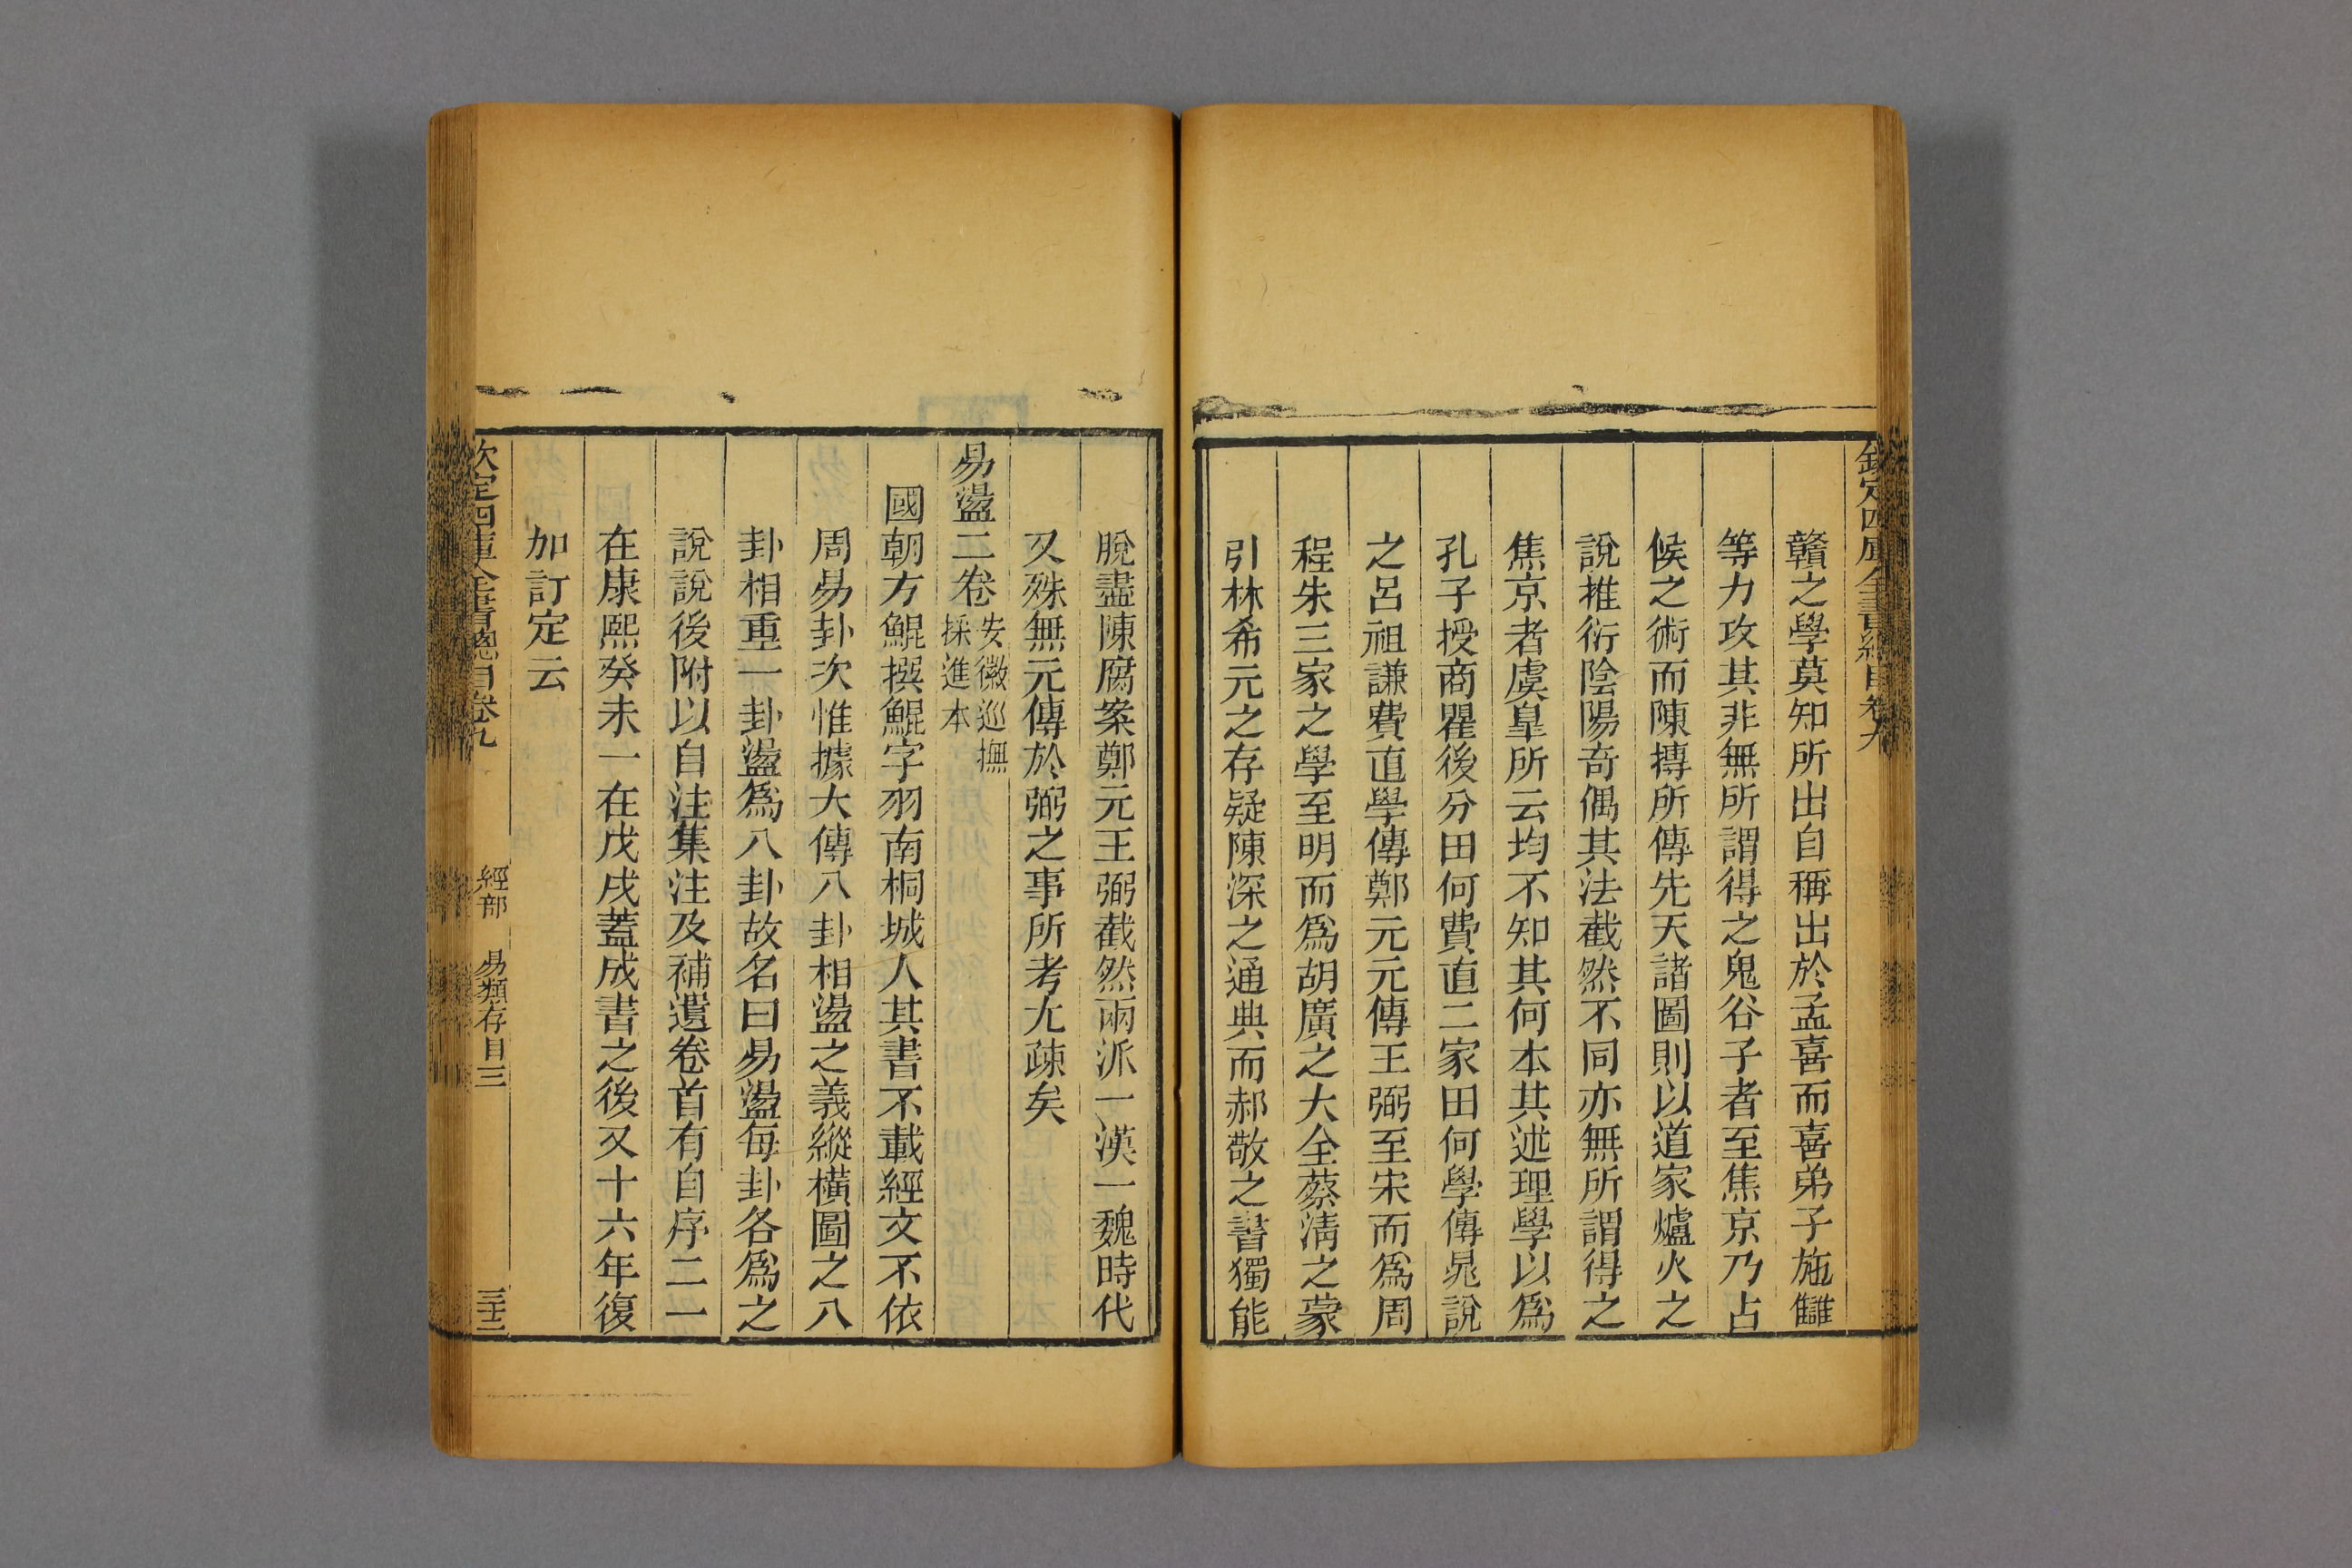 欽定四庫全書總目卷九
贛之學莫知所出自稱出於孟喜而喜弟子施讎
等力攻其非無所謂得之鬼谷子者至焦京乃占
候之術而陳摶所傳先天諸圖則以道家爐火之
說推衍陰陽奇偶其法截然不同亦無所謂得之
焦京者虞臯所云均不知其何本其述理學以為
孔子授商瞿後分田何費直二家田何學傳晁說
之呂祖謙費直學傳鄭元元傳王弼至宋而為周
程朱三家之學至明而為胡廣之大全蔡清之蒙
引林希元之存疑陳深之通典而郝敬之書獨能
脫盡陳腐案鄭元王弼截然兩派一漢一魏時代
又殊無元傳於弼之事所考尤疎矣
易盪二卷安徽巡撫採進本
國朝方鯤撰鯤字羽南桐城人其書不載經文不依
周易卦次惟據大傳八卦相盪之義縱橫圖之八
卦相重一卦盪為八卦故名曰易盪每卦各為之
說說後附以自注集注及補遺卷首有自序二一
在康熙癸未一在戊戌蓋成書之後又十六年復
加訂定云
欽定四庫全書總目卷九 經部 易類存目三 三十三